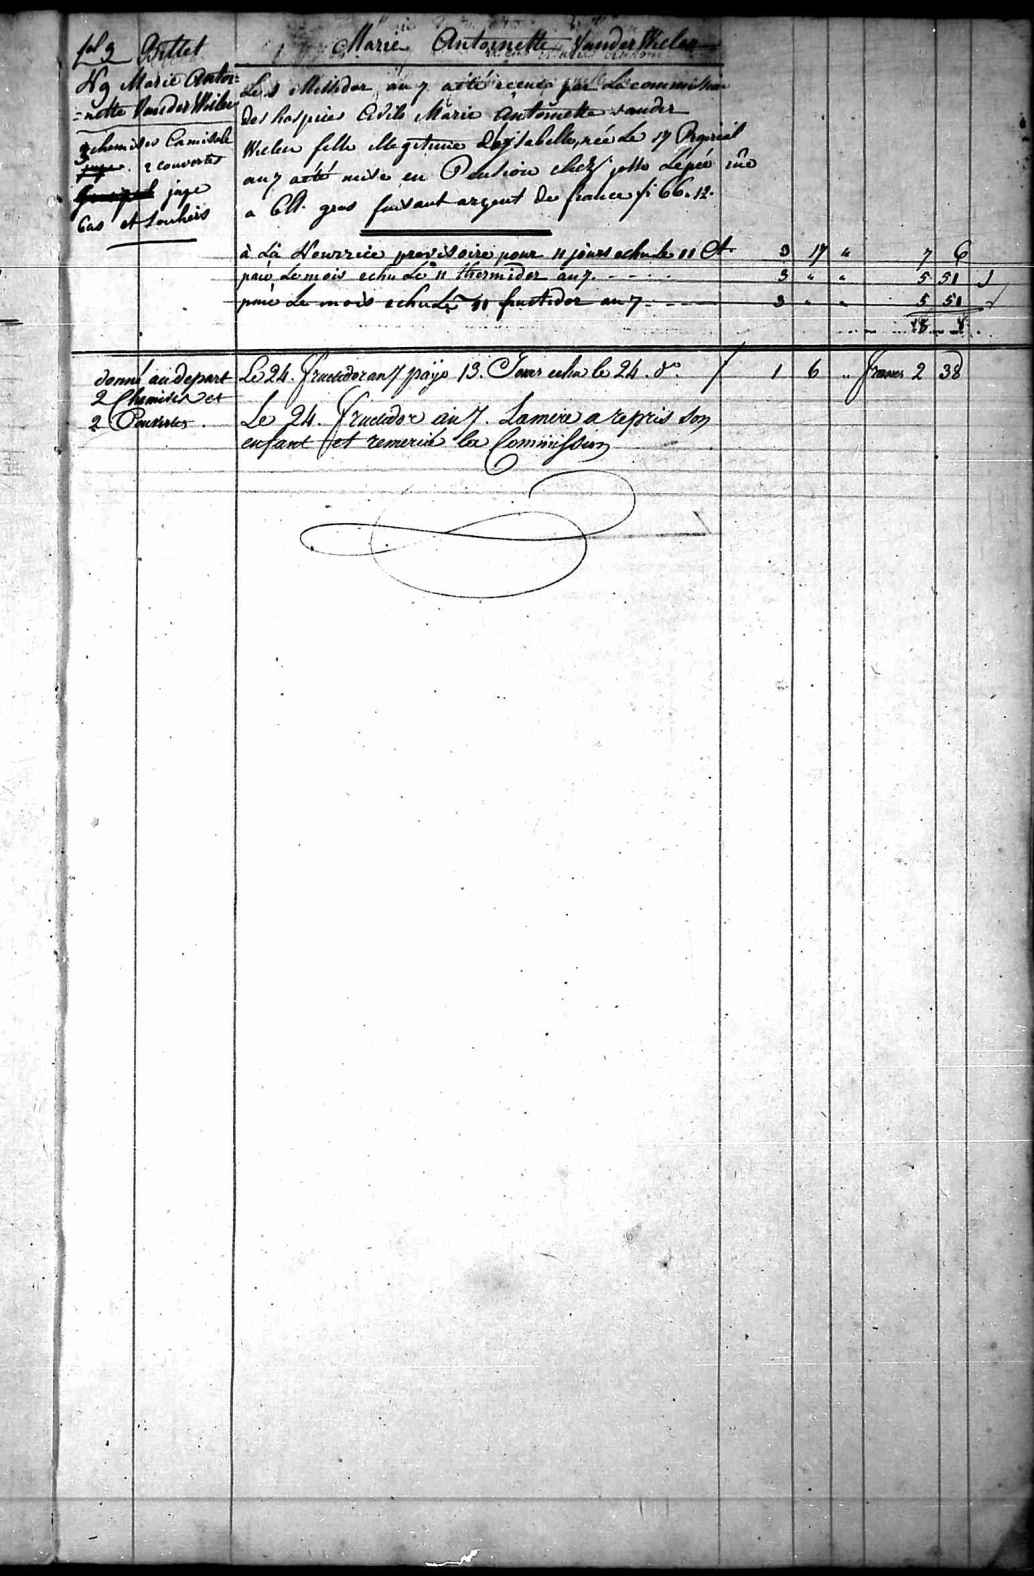 fol 9 Billet
Marie Antoinette Vander Wielen
N 9 Marie Antoi=
=nette Vander Wielen
3 chemises Camisole
2 couvertes
jupe
bas et souliers
Le 1 Messidor an 7 a été recue par La commission
des hospices Civils Marie Antoinette vander
Wielen fille illegitime d'ysabelle, née Le 17 Prairial
an 7 a été mise en Pension chez josse
a gros faisant argent de france f. 66.12.
à La Nourrice provisoire pour 11 jours echu Le 11 Ct. 3 17 " 7 6
payé Le mois echu Le 11 thermidor an 7. 3 " " 5 51
payé Le mois echu Le 11 fructidor an 7 3 " " 5 51
18 8
donné au depart
2 Chemises et
2 Couvertes.
Le 24. fructidor an 7 payé 13. Jours echu le 24. do. 1 6 .. francs 2 38
Le 24. fructidor an 7. La mere a repris son
enfant et remercié la Commission